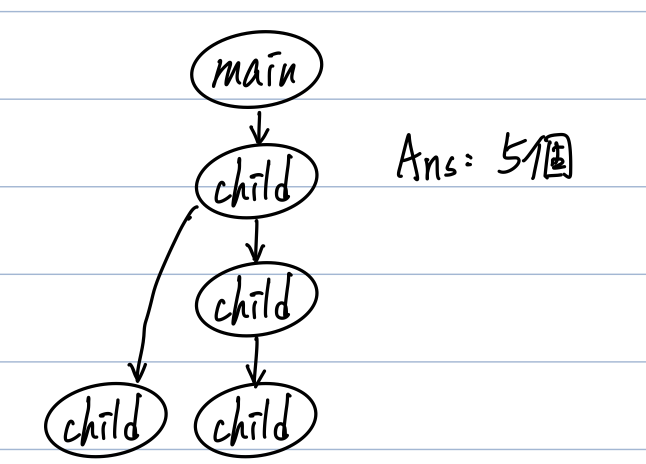 main
child
Ans: 5個
child
child
child